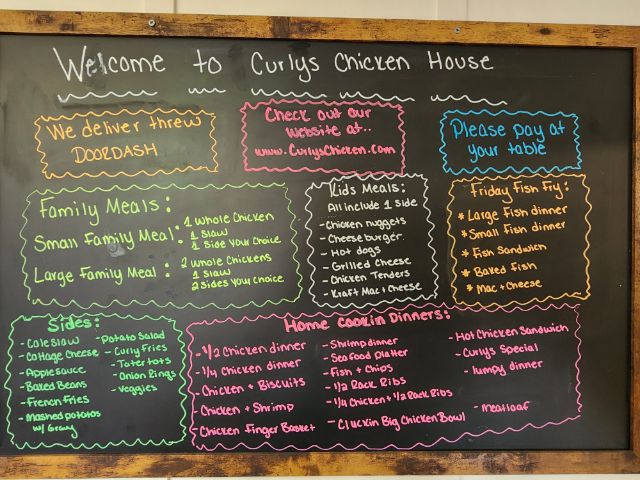 Welcome to Curlys Chicken House
We deliver threw
DOORDASH
Check out our
website at..
www.CurlysChicken.com
Please pay at
your table
Family Meals:
Small Family Meal: 1 whole Chicken
1 Slaw
1 Side Your Choice
Large Family Meal: 2 whole Chickens
1 Slaw
2 Sides Your choice
Kids Meals:
All include 1 side
- Chicken nuggets
- Cheeseburger
- Hot dogs
- Grilled Cheese
- Chicken Tenders
- Kraft Mac + Cheese
Friday Fish Fry:
* Large Fish dinner
* Small Fish dinner
* Fish Sandwich
* Baked Fish
* Mac + Cheese
Sides:
- Coleslaw
- Cottage Cheese
- Applesauce
- Baked Beans
- French Fries
- Mashed potatos
w/ Gravy
- Potato Salad
- Curly Fries
- Tater tots
- Onion Rings
- Veggies
Home Cookin Dinners:
- 1/2 Chicken dinner
- 1/4 Chicken dinner
- Chicken + Biscuits
- Chicken + Shrimp
- Chicken Finger Basket
- Shrimp dinner
- Seafood Platter
- Fish + Chips
- 1/2 Rack Ribs
- 1/4 Chicken + 1/2 Rack Ribs
- Cluckin Big Chicken Bowl
- Hot Chicken Sandwich
- Curlys Special
- 1umpy dinner
- Meatloaf